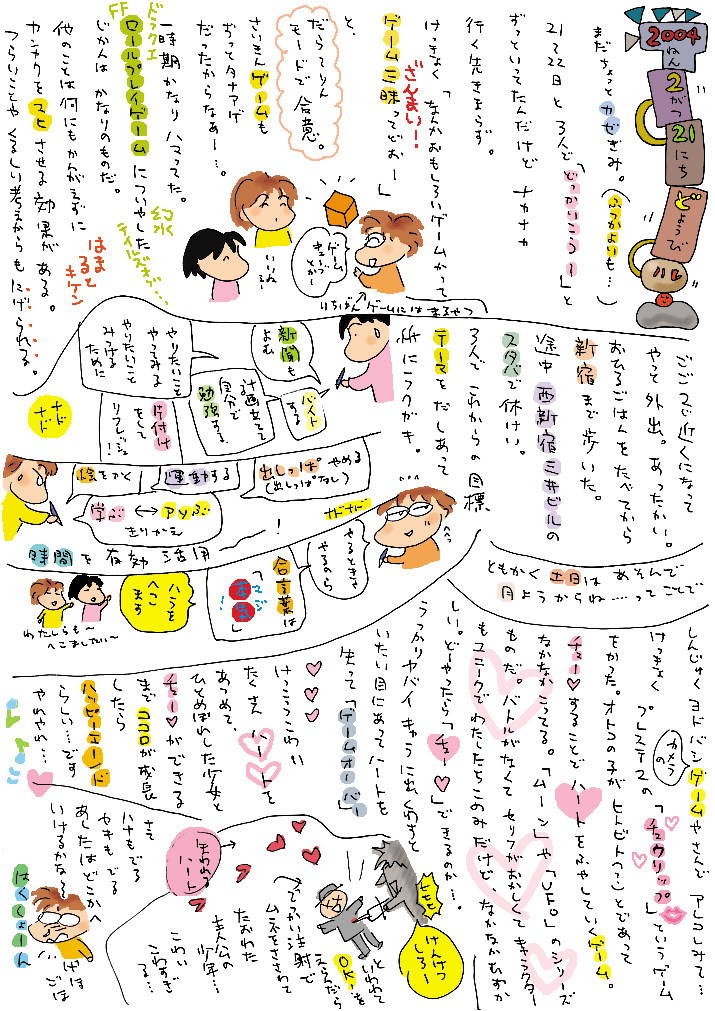 2004ねん
2がつ
21にち
どようび
ハレ
まだちょっとカゼぎみ。
(ふつかよいも…)
21て22日と3人で「どっかいこうう~」と
ずっといってたんだけどナカナカ
行く先きまらず。
けっきょく「なんかおもしろいゲームかって
ゲーム三昧ってどおー」
ざんまい!
と、
だらりん
モードで合意。
さいきんゲームも
ずっとタナアゲ
だったからなぁー…。
一時期かなりハマってた。
ドラクエ
FF
ロールプレイゲームについやした
幻水
テイルズオブ…
じかんはかなりのものだ。
他のことは何にもかんがえずに
カンカクをマヒさせる効果がある。
はまると
キケン
つらいことやくるしい考えからもにげられる。
ゲーム
きゅうっ
とかー
いいね
るー
いちばんゲームにはまるやつ
ごご2じ近くになって
やっと外出。あったかい。
おひるごはんをたべてから
新宿まで歩いた。
途中西新宿三井ビルの
スタバで休けい。
3人でこれからの目標
テーマをだしあって
紙にラクガキ。
新聞も
よむ
バイト
する
計画立てて
自分で
勉強する
やりたいこと
やってみる
やりたいこと
みつける
ために
片付け
をして
リフレッシュ!
ナド
ナド
絵をかく
運動する
出しっぱ やめる
(出しっぱなし)
学ぶ↔アソぶ
きりかえ
ナドナド
時間を有効活用
!
へへっ
やるときゃ
やるから
合言葉は
「マジ
本気!」
ハラを
へこ
ます
わたしらも~
へこましたい~
ともかく土日はあそんで
月ようからね……ってことで
しんじゅくヨドバシゲームやさんでアレコレみて…
カメラ
の
けっきょく プレステの「チュウリップ」というゲーム
をかった。オトコの子がヒトビト(?)とであって
チュー♥することでハートをふやしていくゲーム。
なかなかこってる。「ムーン」や「UFO」のシリーズ
ものだ。バトルがなくてセリフがおかしくてキャラクター
もユニークでわたしたちこのみだけど、なかなかむずか
しい。どーやったら「チュー♥」できるのか…。
うっかりヤバイキャラに出くわすと
いたい目にあってハートを
失って「ゲームオーバー」
けっこうコワい
たくさんハートを
あつめて、
ひとめぼれした少女と
チュー♥ができる
までココロが成長
したら
ハッピーエンド
らしい…です
やれやれ…
失われる
ハート
ヒヒヒ
けんけつ
しろー
といわれて
OKを
えらんだら
でっかい注射で
ムネをさされて
たおれた
主人公の
少年…
こわい
こわすぎ
る…
さて
ハナもでる
セキもでる
あしたはどこかへ
いけるかな~
けほ
ごほ
はくしょーん